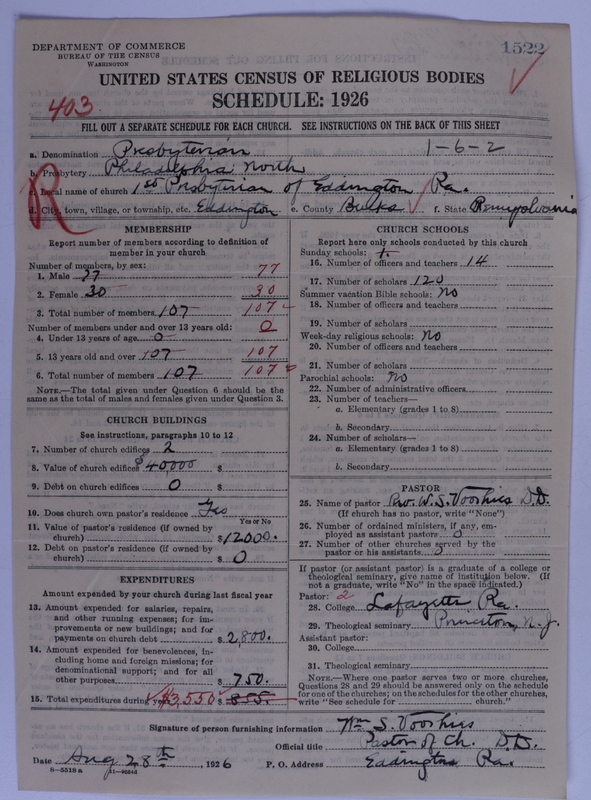 DEPARTMENT OF COMMERCE
BUREAU OF THE CENSUS
WASHINGTON
1522
UNITED STATES CENSUS OF RELIGIOUS BODIES
SCHEDULE: 1926
403
FILL OUT A SEPARATE SCHEDULE FOR EACH CHURCH. SEE INSTRUCTIONS ON THE BACK OF THIS SHEET
a. Denomination Presbyterian 1-6-2
b. Presbytery Philadelphia North
R
c. Local name of church 1st Presbyterian of Eddington Pa.
d. City, town, village, or township, etc. Eddington e. County Bucks f. State Pennsylvania
MEMBERSHIP
Report number of members according to definition of
member in your church
Number of members, by sex:
1. Male 77 77
2. Female 30 30
3. Total number of members 107 107
Number of members under and over 13 years old:
4. Under 13 years of age 0 0
5. 13 years old and over 107 107
6. Total number of members 107 107
NOTE.—The total given under Question 6 should be the
same as the total of males and females given under Question 3.
CHURCH BUILDINGS
See instructions, paragraphs 10 to 12
7. Number of church edifices 2
8. Value of church edifices $40,000 $
9. Debt on church edifices 0 $
10. Does church own pastor's residence Yes
Yes or No
11. Value of pastor's residence (if owned by
church) $12000.
12. Debt on pastor's residence (if owned by
church) $ 0
EXPENDITURES
Amount expended by your church during last fiscal year
13. Amount expended for salaries, repairs,
and other running expenses; for im-
provements or new buildings; and for
payments on church debt $2,800.
14. Amount expended for benevolences, in-
cluding home and foreign missions; for
denominational support; and for all
other purposes $ 750.
15. Total expenditures during year $3,550 $ 855.
CHURCH SCHOOLS
Report here only schools conducted by this church
Sunday schools: 1.
16. Number of officers and teachers 14
17. Number of scholars 120
Summer vacation Bible schools: No
18. Number of officers and teachers
19. Number of scholars
Week-day religious schools: No
20. Number of officers and teachers
21. Number of scholars
Parochial schools: No
22. Number of administrative officers
23. Number of teachers—
a. Elementary (grades 1 to 8)
b. Secondary
24. Number of scholars—
a. Elementary (grades 1 to 8)
b. Secondary
PASTOR
25. Name of pastor Rev. W. S. Voorhies D.D.
(If church has no pastor, write "None")
26. Number of ordained ministers, if any, em-
ployed as assistant pastors 0
27. Number of other churches served by the
pastor or his assistants 0
If pastor (or assistant pastor) is a graduate of a college or
theological seminary, give name of institution below. (If
not a graduate, write "No" in the space indicated.)
Pastor: 2
28. College Lafayette Pa.
29. Theological seminary Princeton, N. J.
Assistant pastor:
30. College
31. Theological seminary
NOTE.—Where one pastor serves two or more churches,
Questions 28 and 29 should be answered only on the schedule
for one of the churches; on the schedules for the other churches,
write "See schedule for church."
Signature of person furnishing information Wm S. Voorhies
Official title Pastor of Ch. D.D.
Date Aug 28th, 1926 P. O. Address Eddington Pa.
8—5518a